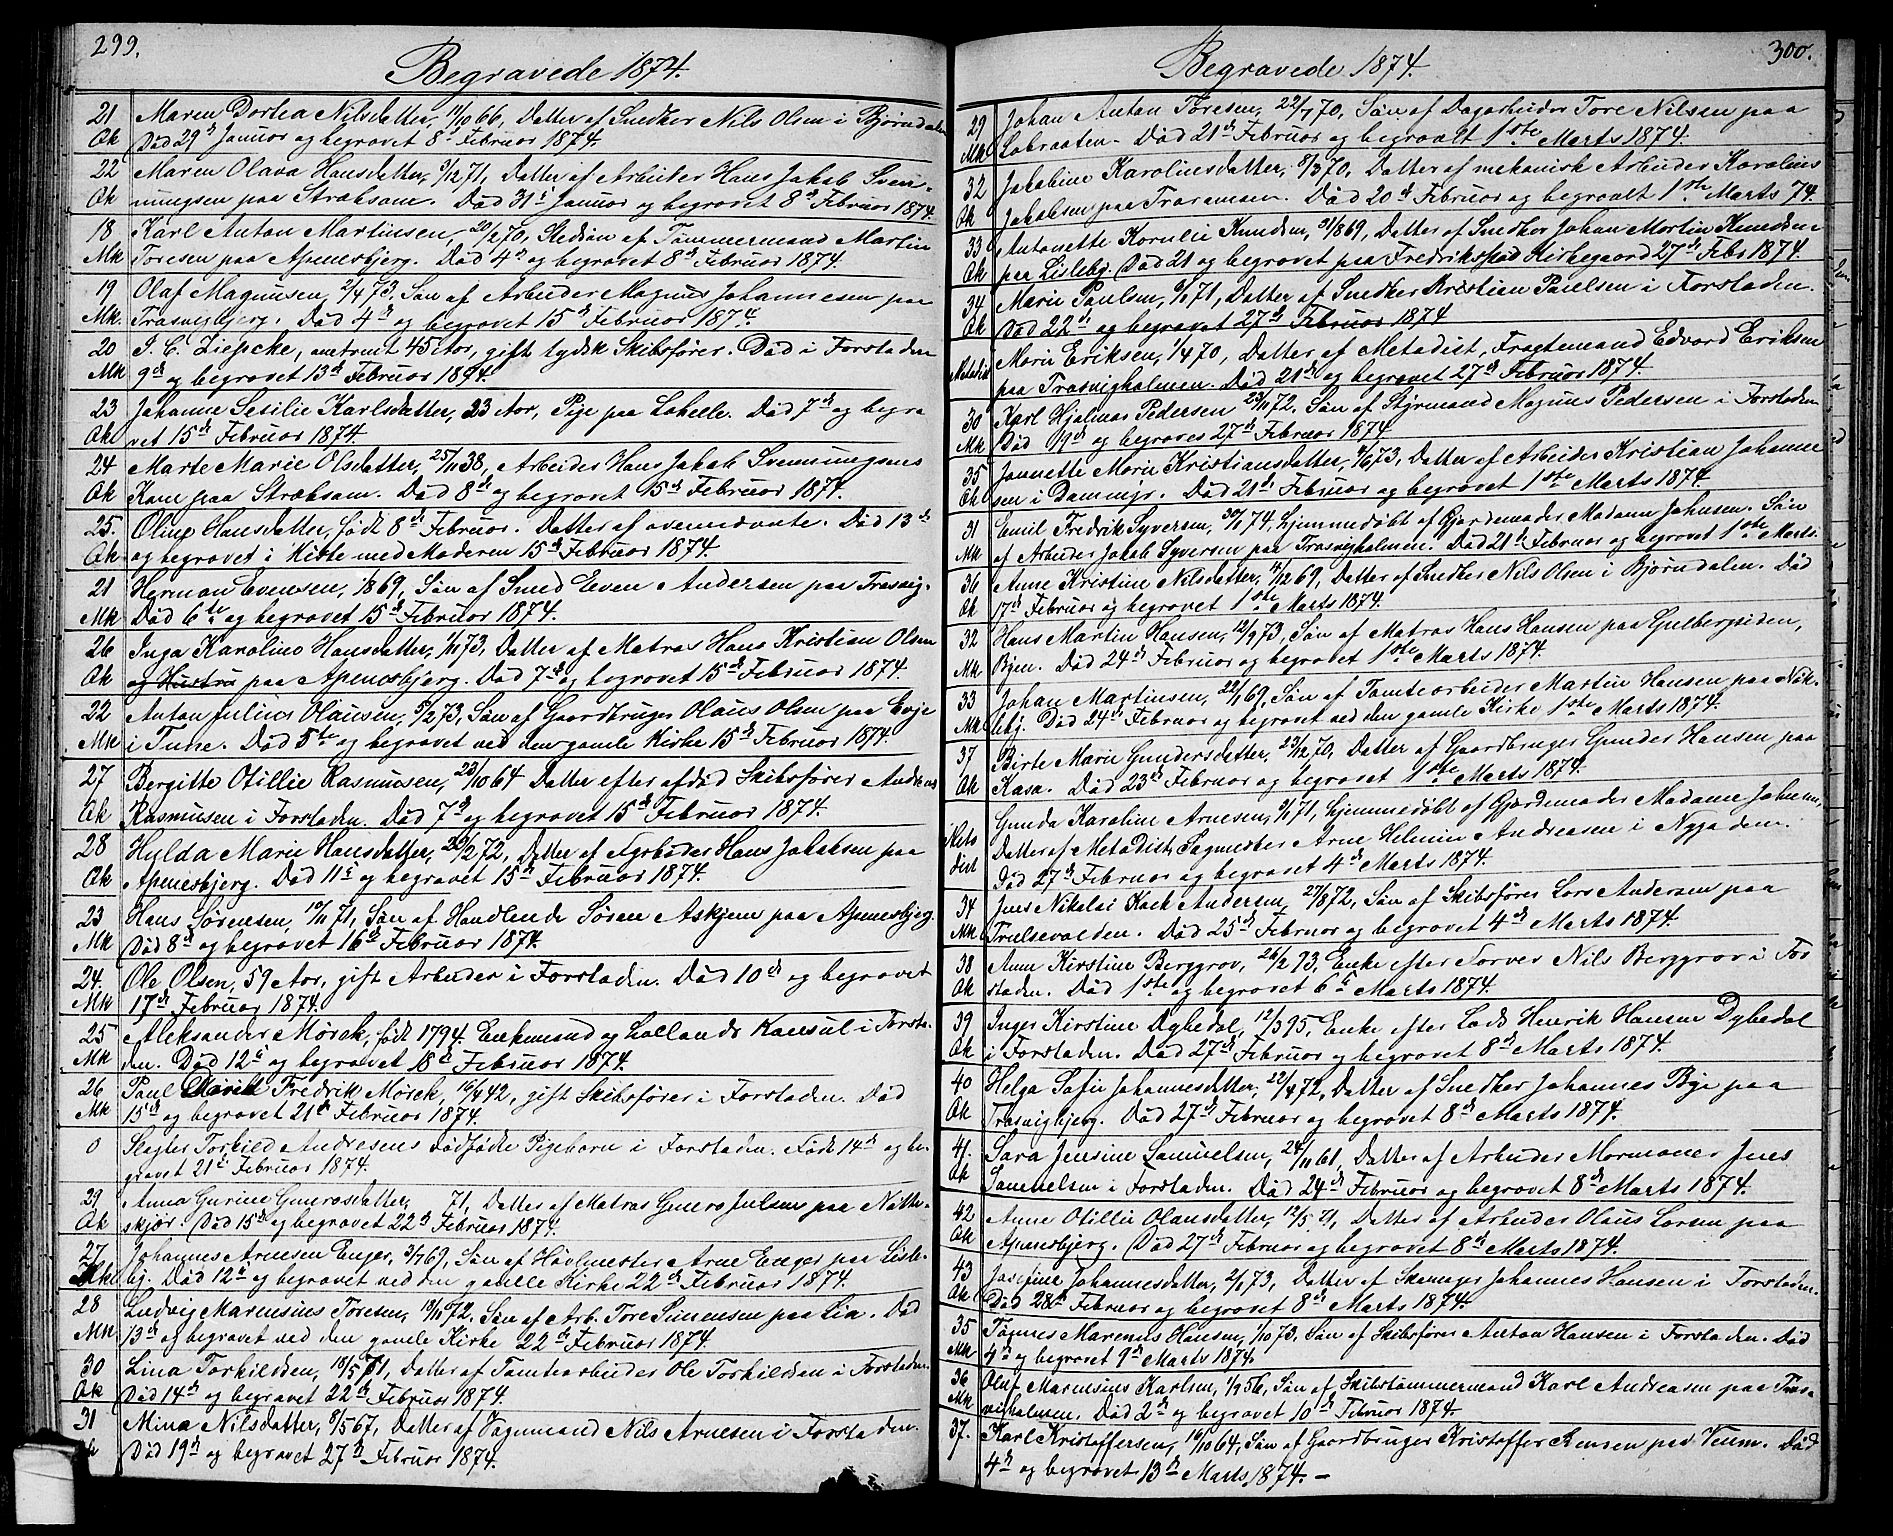 299.
Begravede 1874.
21 Maren Dortea Nilsdatter, 11/10 66, Datter af Snedker Nils Olsen i Bjørndalen
Qk Død 29de Januar og begravet 8de Februar 1874.
22 Maren Olava Hansdatter, 9/12 71, Datter af Arbeider Hans Jakob Sven-
Qk ningsen paa Stræksam. Død 31te Januar og begravet 8de Februar 1874.
18 Karl Anton Martinsen, 20/2 70, Stedsøn af Tømmermand Martin
Mk Toresen paa Apenesbjerg. Død 4de og begravet 8de Februar 1874.
19 Olaf Magnusen, 2/4 73, Søn af Arbeider Magnus Johannesen paa
Mk. Trosvigbjerg. Død 4de og begravet 15de Februar 1874.
20 J. C. Ziepcke, omtrent 45 Aar, gift tydsk Skibsfører. Død i Forstaden
Mk 9de og begravet 13de Februar 1894.
23 Johanne Sesilie Karlsdatter, 23 Aar, Pige paa Labelle. Død 7de og begra
Qk vet 15de Februar 1874.
24 Marte Marie Olsdatter, 25/11 38, Arbeider Hans Jakob Svenningsens
Qk Kone paa Stræksam. Død 8de og begravet 15de Februar 1874.
25. Oline Hansdatter, født 8de Februar. Datter af ovennævnte. Død 13de
Qk og begravet i Kiste med Moderen 15de Februar 1874.
21 Herman Evensen, 1869, Søn af Smed Even Andersen paa Trosvig.
Mk Død 6te og begravet 15de Februar 1874.
26 Inga Karoline Hansdatter, 1/11 73, Datter af Matros Hans Kristian Olsen
Qk og Hustru paa Apenesbjerg. Død 7de og begravet 15de Februar 1874.
22 Anton Julius Olausen, 5/2 73, Søn af Gaardbruger Olaus Olsen paa Evje
Mk i Tune. Død 5te og begravet ved den gamle Kirke 15de Februar 1874.
27 Bergitte Otillie Rasmusen, 23/10 64 Datter efter afdød Skibsfører Andreas
Qk Rasmusen i Forstaden. Død 7de og begravet 15de Februar 1874.
28 Hylda Marie Hansdatter, 20/2 72, Datter af Arbeider Hans Jakobsen paa
Qk Apenesbjerg. Død 11te og begravet 15de Februar 1874.
23 Hans Sørensen, 10/11 71, Søn af Handlende Søren Askjem paa Apenesbjerg.
Mk Død 8de og begravet 16de Februar 1874.
24. Ole Olsen, 59 Aar, gift Arbeider i Forstaden. Død 10de og begravet
Mk 17de Februar 1874.
25 Aleksander Mørch, født 1794. Enkemand og Hollands Konsul i Forsta-
Mk den. Død 12te og begravet 18de Februar 1874.
26 Paul David Fredrik Mørch, 16/4 42, gift Skibsfører i Forstaden. Død
Mk 15de og begravet 21de Februar 1874.
0 Slagter Torkild Andresens dødfødte Pigebarn i Forstaden. Født 14de og be-
gravet 21de Februar 1874.
29 Anna Gurine Gunerosdatter, 71, Datter af Matros Guneros Julsen paa Nabbe-
Qk skjær. Død 15de og begravet 22de Februar 1874.
27 Johannes Arnesen Enger, 3/7 69, Søn af Høvlmester Arne Enger paa Lisle-
Mk bg. Død 12te og begravet ved den gamle Kirke 22de Februar 1874.
28 Ludvig Marensius Toresen, 18/11 72. Søn af Arb. Tore Simensen paa Lia. Død
Mk 13de og begravet ved den gamle Kirke 22de Februar 1874.
30 Lina Torkildsen, 18/5 71, Datter af Tomtearbeider Ole Torkildsen i Forstaden.
Qk Død 14de og begravet 22de Februar 1874.
31 Mina Nilsdatter, 9/5 67, Datter af Vognmand Nils Arnesen i Forstaden.
Qk Død 19de og begravet 27de Februar 1874.
300.
Begravede 1874.
29 Johan Anton Toresen, 22/7 70, Søn af Dagarbeider Tore Nilsen paa
Mk Labraaten. Død 21de Februar og begravet 1ste Marts 1874.
32 Jakobine Karolinsdatter, 8/3 70, Datter af mekanisk Arbeider Karolius
Qk Jakobsen paa Traraveien. Død 20de Februar og begravet 1ste Marts 74.
33 Antonette Kornelie Knudsen, 31/8 69, Datter af Snedker Johan Martin Knudsen
Qk paa Lislebg. Død 21 og begravet paa Fredrikstad Kirkegaard 27de Febr 1874.
34 Marie Paulsen, 9/1 71, Datter af Snedker Kristian Paulsen i Forstaden.
Qk Død 22de og begravet 27de Februar 1874
Metodist Marie Eriksen, 1/4 70, Datter af Metodist, Fragtemand Edvard Eriksen
paa Trosvigholmen. Død 21de og begravet 27de Februar 1874.
30 Karl Hjalmar Pedersen 23/11 72. Søn af Styrmand Magnus Pedersen i Forstaden
Mk Død 19de og begraves 27de Februar 1874.
35 Jannette Marie Kristiansdatter, 9/6 73, Datter af Arbeider Kristian Johanne
Qk sen i Dammyr. Død 21de Februar og begravet 1ste Marts 1874.
31 Emil Fredrik Syversen, 30/1 74, hjemmedøbt af Gjordemoder Madame Johnsen. Søn
Mk af Arbeider Jakob Syversen paa Trosvigholmen. Død 21de Februar og begravet 1ste Marts.
36 Anne Kristine Nilsdatter, 4/12 69, Datter af Snedker Nils Olsen i Bjørndalen. Død
Qk 17de Februar og begravet 1ste Marts 1874.
32 Hans Martin Hansen, 12/9 73, Søn af Matros Hans Hansen paa Gulbergsiden,
Mk Byen. Død 24de Februar og begravet 1ste Marts 1874.
33 Johan Martinsen, 22/1 69, Søn af Tomtearbeider Martin Hansen paa Nøk-
Mk lebg. Død 24de Februar og begravet ved den gamle Kirke 1ste Marts 1874.
37 Birte Marie Gundersdatter, 23/12 70, Datter af Gaardbruger Gunder Hansen paa
Qk Kasa. Død 23de Februar og begravet 1ste Marts 1874.
Meto Gunda Karoline Arnesen, 9/1 71, hjemmedøbt af Gjordemoder Madame Johnsen,
dist Datter af Metodist, Sagmester Arne Helmin Andreasen i Nygaden.
Død 27de Februar og begravet 4de Marts 1874.
34 Jens Nikolai Koch Andersen, 27/8 72, Søn af Skibsfører Lars Andersen paa
Mk Trulsevolden. Død 25de Februar og begravet 4de Marts 1874.
38 Anne Kirstine Berggrov, 26/2 93, Enke efter Farver Nils Berggrov i For
Qk staden. Død 1ste og begravet 6te Marts 1874.
39 Inger Kirstine Dybedal, 12/3 95, Enke efter Lods Henrik Hansen Dybedal
Qk i Forstaden. Død 27de Februar og begravet 8de Marts 1874.
40 Helga Sofie Johannesdatter, 22/4 72, Datter af Snedker Johannes Bye paa
Qk Trosvigbjerg. Død 27de Februar og begravet 8de Marts 1874.
41. Sara Jensine Samuelsen, 24/11 61, Datter af Arbeider Mormoner Jens
Qk Samuelsen i Forstaden. Død 24de Februar og begravet 8de Marts 1874.
42 Anne Otillie Olausdatter, 12/5 71, Datter af Arbeider Olaus Larsen paa
Qk Apenesbjerg. Død 27de Februar og begravet 8de Marts 1874.
43 Josefine Johannesdatter, 2/1 73, Datter af Skomager Johannes Hansen i Forstaden.
Qk Død 28de Februar og begravet 8de Marts 1874.
35 Tønnes Marenus Hansen, 1/10 73, Søn af Skibsfører Anton Hansen i Forstaden. Død
Mk 4de og begravet 9de Marts 1874.
36 Oluf Marensius Karlsen, 1/9 56, Søn af Skibstømmermand Karl Andreasen paa Tros-
Mk vigholmen. Død 2de og begravet 10de Februar 1874.
37. Karl Kristoffersen, 16/10 64, Søn af Gaardbruger Kristoffer Rensen paa Veum. Død
4de og begravet 13de Marts 1874. –